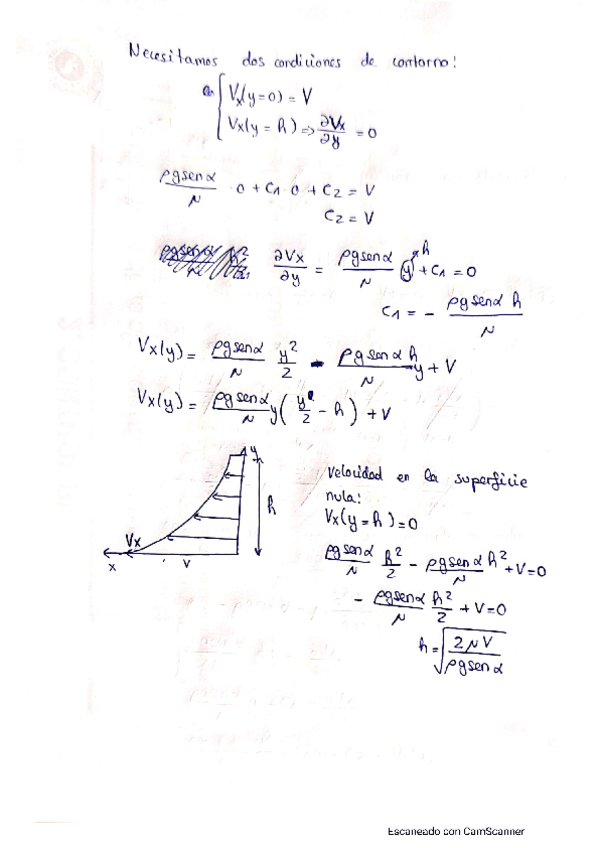 Necesitamos dos condiciones de contorno:
Vx(y=0) = V
Vx(y = h) => ∂Vx/∂y = 0
ρgsenα/μ · 0 + C1 · 0 + C2 = V
C2 = V
∂Vx/∂y = ρgsenα/μ y + C1 = 0
h
C1 = - ρgsenα h/μ
Vx(y) = ρgsenα/μ y²/2 - ρgsenα h/μ y + V
Vx(y) = ρgsenα/μ y( y/2 - h ) + V
y
h
Vx
x
V
Velocidad en la superficie
nula:
Vx(y=h)=0
ρgsenα/μ h²/2 - ρgsenα h²/μ + V=0
- ρgsenα/μ h²/2 + V=0
h = √(2μV/ρgsenα)
Escaneado con CamScanner